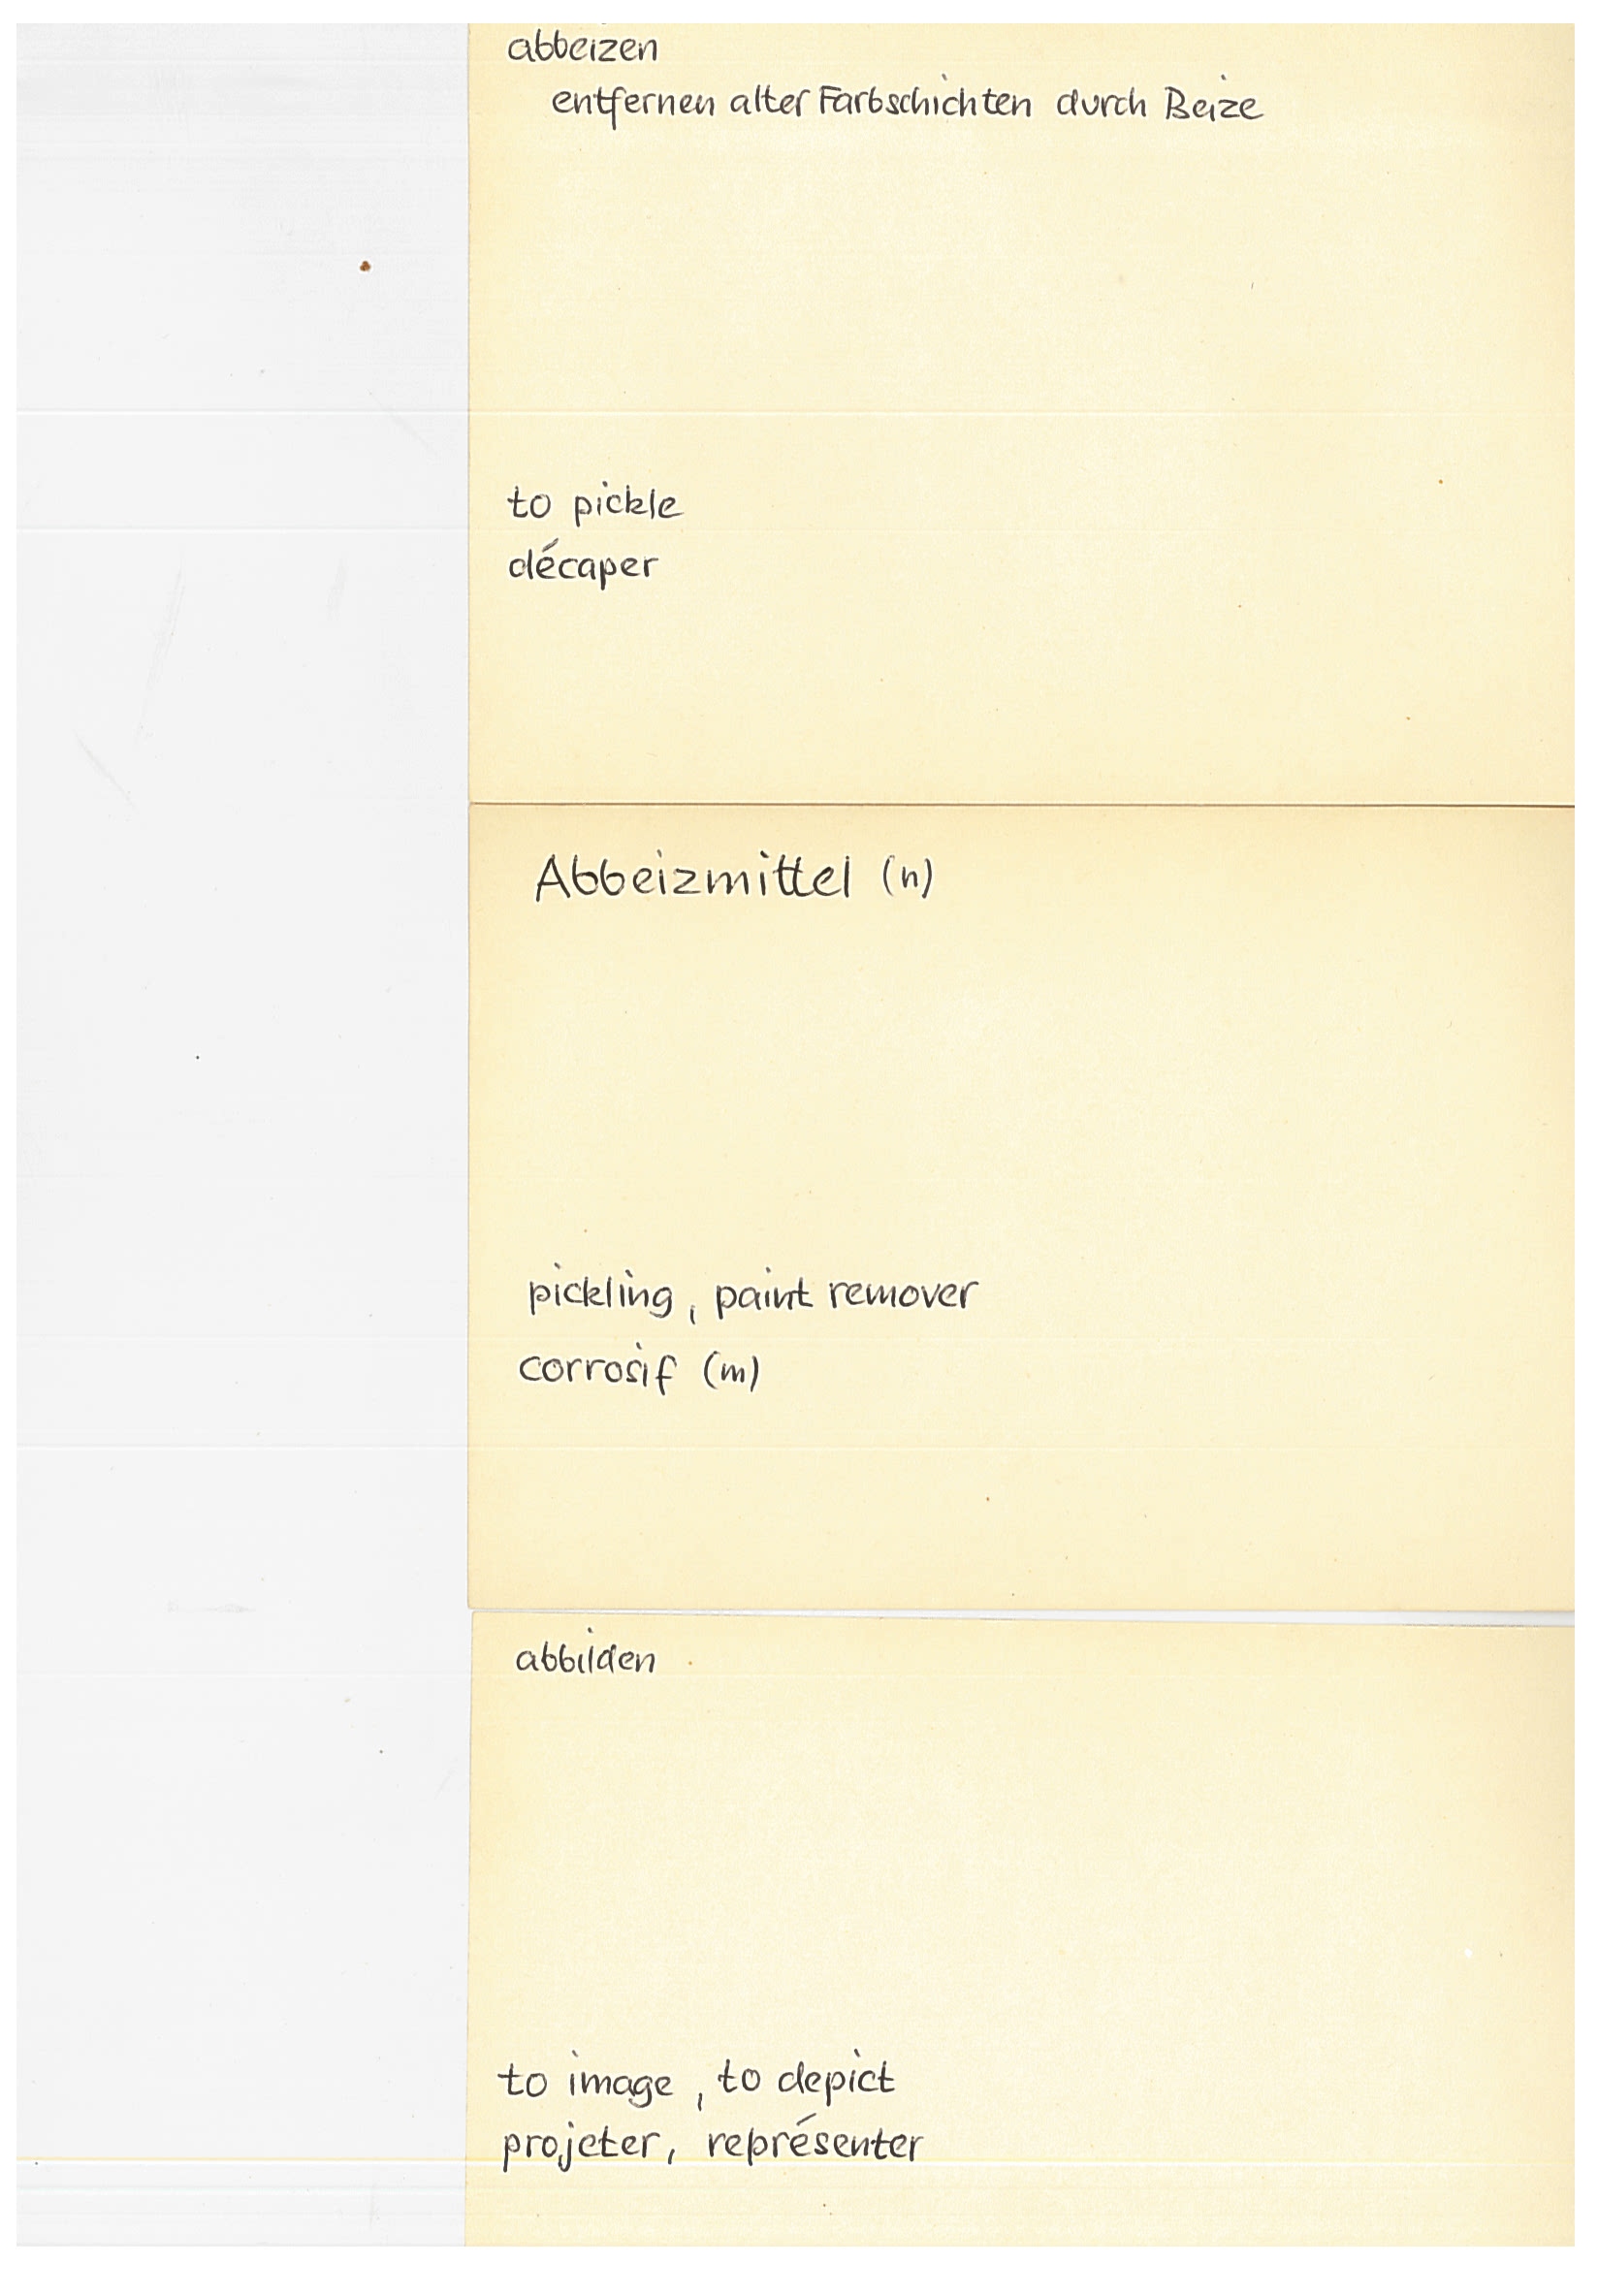 abbeizen
entfernen alter Farbschichten durch Beize
to pickle
décaper
Abbeizmittel (n)
pickling, paint remover
corrosif (m)
abbilden
to image, to depict
projeter, représenter